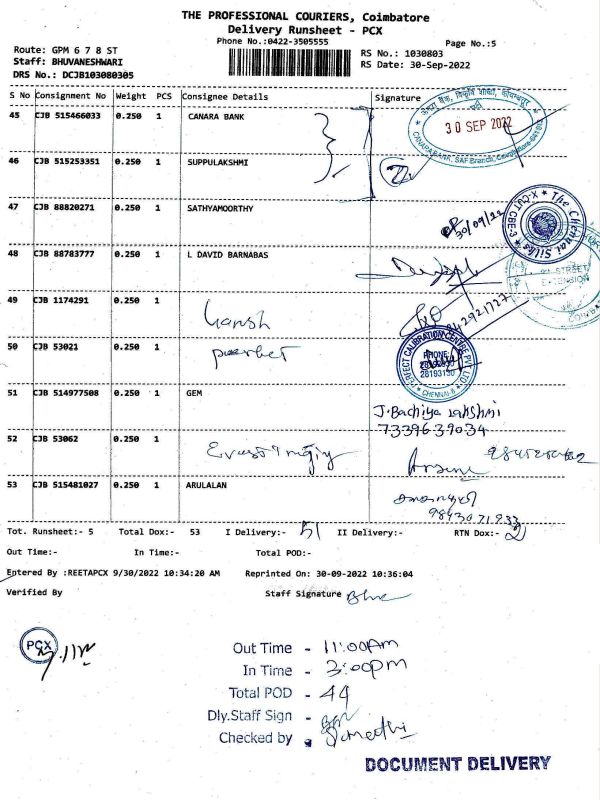 THE PROFESSIONAL COURIERS, Coimbatore
Delivery Runsheet - PCX
Phone No.:0422-3505555
Page No.:5
Route: GPM 6 7 8 ST
Staff: BHUVANESHWARI
DRS No.: DCJB103080305
RS No.: 1030803
RS Date: 30-Sep-2022
S No Consignment No Weight PCS Consignee Details Signature
45 CJB 515466033 0.250 1 CANARA BANK
30 SEP 2022
46 CJB 515253351 0.250 1 SUPPULAKSHMI
47 CJB 88820271 0.250 1 SATHYAMOORTHY
30/09/22
The Chennai Silks
48 CJB 88783777 0.250 1 L DAVID BARNABAS
STREET
EXTENSION
49 CJB 1174291 0.250 1
Harish
50 CJB 53021 0.250 1
PERFECT CALIBRATION CENTRE PVT LTD
PHONE
28193130
CHENNAI-6
51 CJB 514977508 0.250 1 GEM
J.Bachiya lakshmi
7339639034
52 CJB 53062 0.250 1
53 CJB 515481027 0.250 1 ARULALAN
Tot. Runsheet:- 5 Total Dox:- 53 I Delivery:- 51 II Delivery:- RTN Dox:- 2
Out Time:- In Time:- Total POD:-
Entered By :REETAPCX 9/30/2022 10:34:20 AM Reprinted On: 30-09-2022 10:36:04
Verified By Staff Signature
PCX
Out Time - 11:00Am
In Time - 3:00pm
Total POD - 44
Dly.Staff Sign -
Checked by -
DOCUMENT DELIVERY